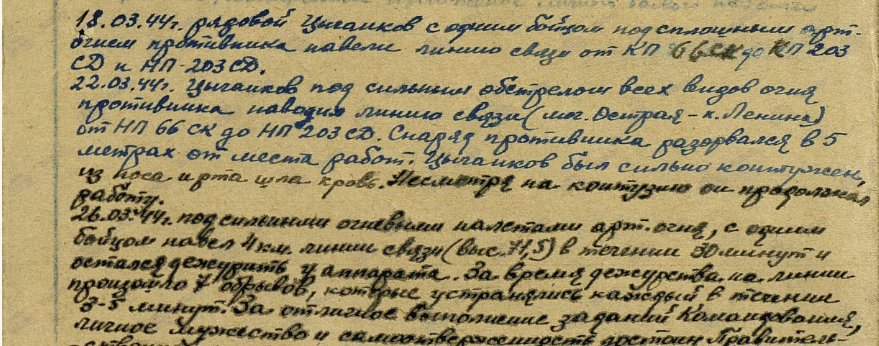 18.03.44г. рядовой Цыганков с одним бойцом под сплошным арт-
огнем противника навели линию связи от КП 66 СК до КП 203
СД и НП-203 СД.
22.03.44г. Цыганков под сильным обстрелом всех видов огня
противника наводил линию связи (мог. Острая - х. Ленина)
от НП 66 СК до НП 203 СД. Снаряд противника разорвался в 5
метрах от места работ. Цыганков был сильно контужен,
из носа и рта шла кровь. Несмотря на контузию он продолжал
работу.
26.03.44г. под сильными огневыми налетами арт. огня, с одним
бойцом навел 4 км. линии связи (выс. 71,5) в течении 30 минут и
остался дежурить у аппарата. За время дежурства на линии
произошло 7 обрывов, которые устранялись каждый в течении
3-5 минут. За отличное выполнение заданий Командования,
личное мужество и самоотверженность достоин Правитель-